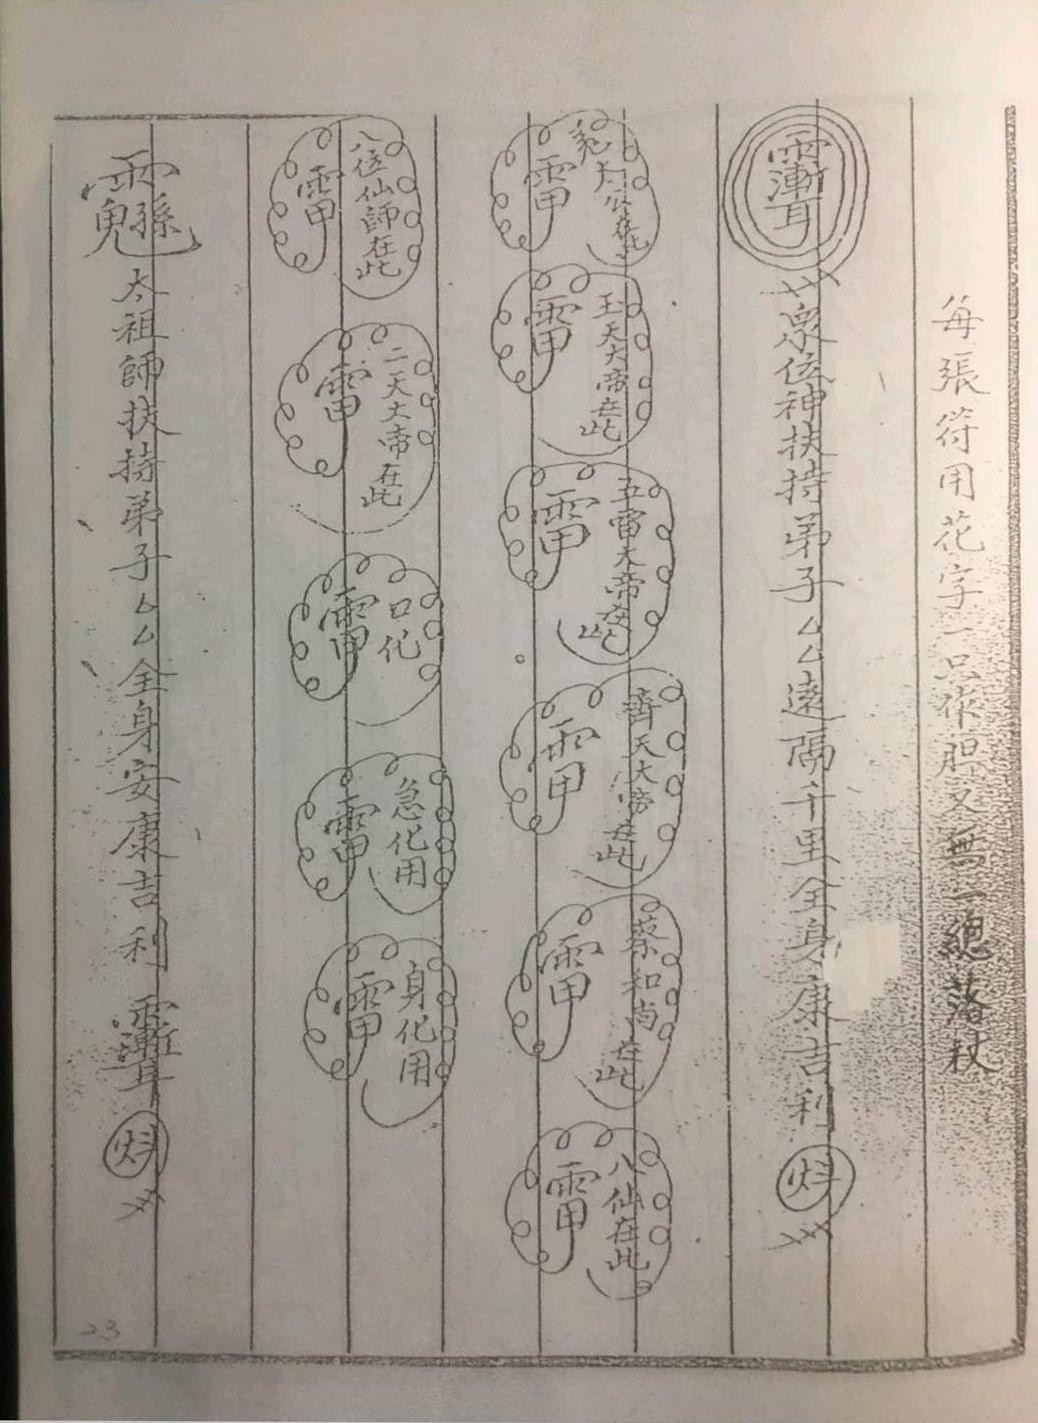 每張符用花字一只作胆又無一總落杖
衆位神扶持弟子厶厶遠隔千里全身康吉利
大公在此
玉天大帝在此
五雷大帝在此
齊天大帝在此
蔡和尚在此
八仙在此
八位仙師在此
二天大帝在此
口化
急化用
身化用
太祖師扶持弟子厶厶全身安康吉利
23